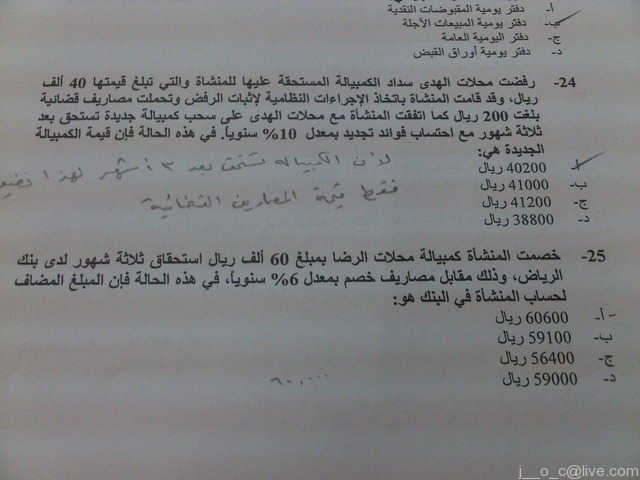 أ- دفتر يومية المقبوضات النقدية
ب- دفتر يومية المبيعات الآجلة
ج- دفتر اليومية العامة
د- دفتر يومية أوراق القبض
24- رفضت محلات الهدى سداد الكمبيالة المستحقة عليها للمنشأة والتي تبلغ قيمتها 40 ألف
ريال، وقد قامت المنشأة باتخاذ الإجراءات النظامية لإثبات الرفض وتحملت مصاريف قضائية
بلغت 200 ريال كما اتفقت المنشأة مع محلات الهدى على سحب كمبيالة جديدة تستحق بعد
ثلاثة شهور مع احتساب فوائد تجديد بمعدل 10% سنوياً. في هذه الحالة فإن قيمة الكمبيالة
الجديدة هي:
أ- 40200 ريال
لأن الكمبيالة تستحق بعد ٣ أشهر لهذا نضيف
ب- 41000 ريال
فقط قيمة المصاريف القضائية
ج- 41200 ريال
د- 38800 ريال
25- خصمت المنشأة كمبيالة محلات الرضا بمبلغ 60 ألف ريال استحقاق ثلاثة شهور لدى بنك
الرياض، وذلك مقابل مصاريف خصم بمعدل 6% سنوياً، في هذه الحالة فإن المبلغ المضاف
لحساب المنشأة في البنك هو:
أ- 60600 ريال
ب- 59100 ريال
ج- 56400 ريال
د- 59000 ريال
٦٠,٠٠٠
j__o_c@live.com